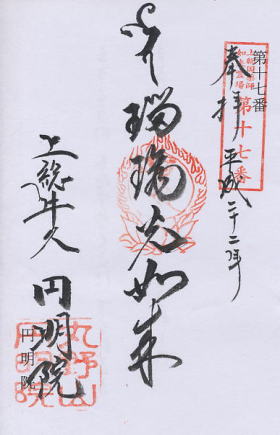 第十七番
第十七番
奉拝 平成二十二年
瑠璃光如来
上総牛久 円明院
円明院